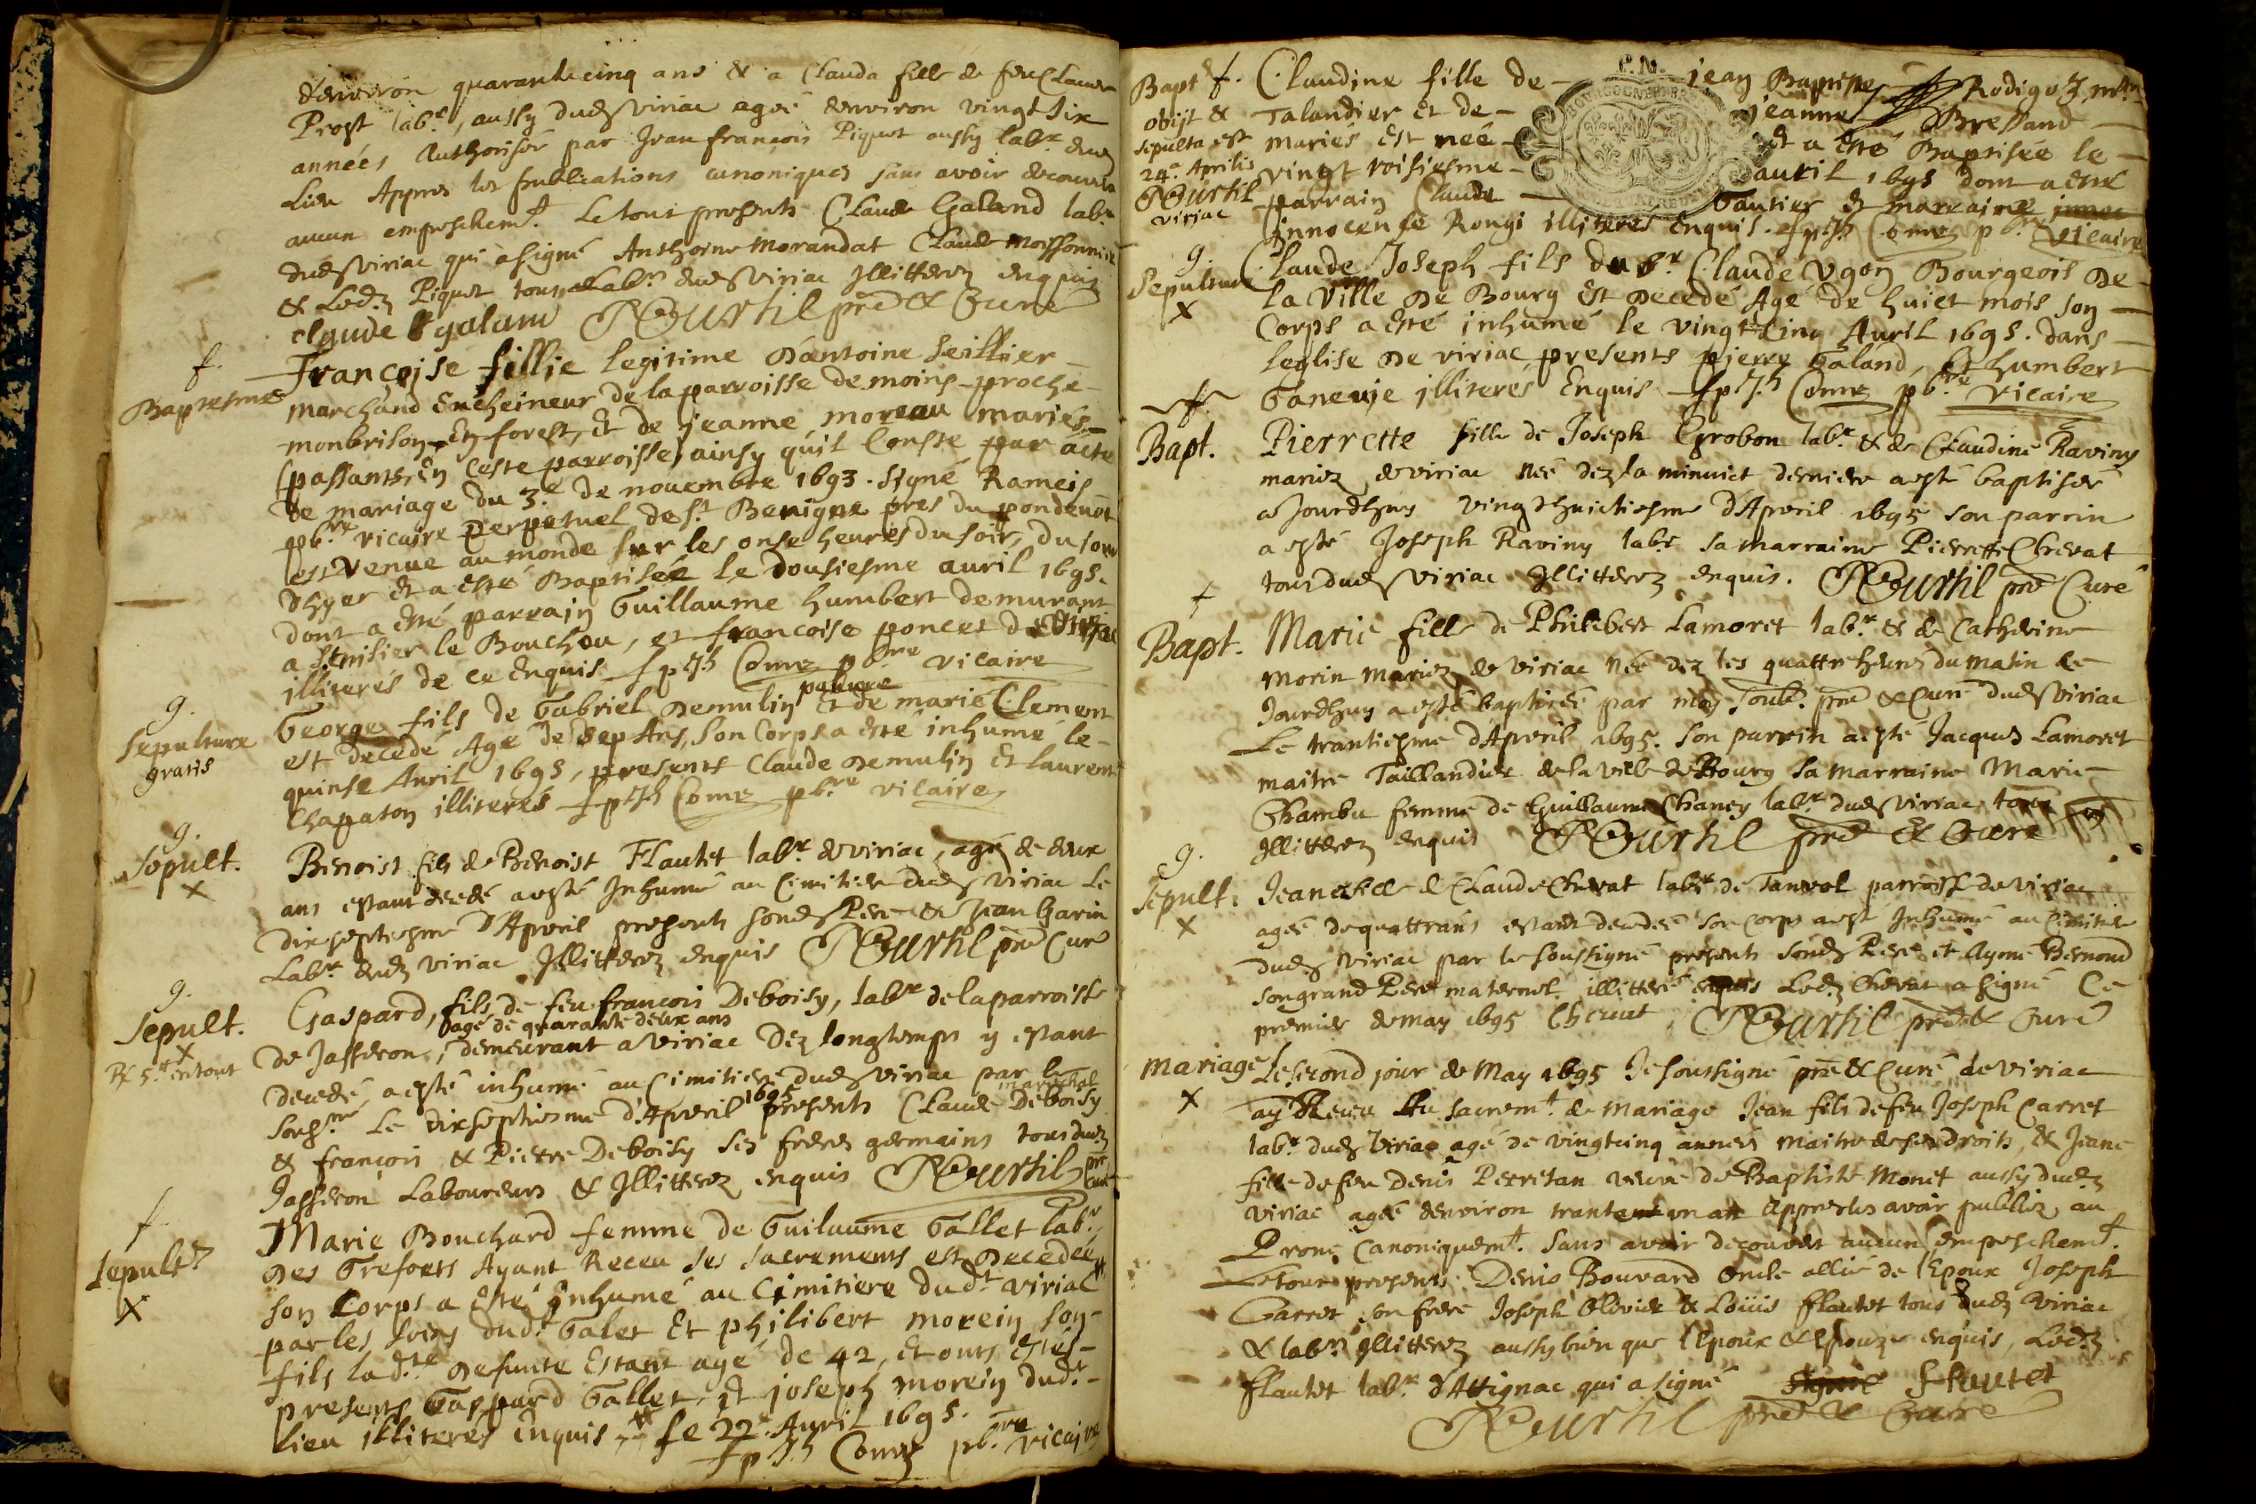 denviron quarantecinq ans & a Clauda fille de feu Claude
Prost lab.r, aussy dud. viriac ageé denviron vingt six
années Authorisée par Jean françois Piquet aussy lab.r dud
Lieu Appres les publications canoniques sans avoir decouvert
aucun empeschem.t. Le tout presents Claude Galand lab.r
dud. viriac qui a signé Anthoine Morandat Claude Moissonnier
& Led. Piquet tous lab.rs dud. viriac Illitterez enquis
claude galand pre & Curé
f.
Baptesme
Françoise fillie legitime D'antoine Seillier
marchand Encheineur de la parroisse de moins proche
monbrison En forest, et de jeanne moreau mariés
(passants En ceste parroisse) ainsy quil Conste par acte
de mariage du 3.e de nouembre 1693. signé Rameis
pb.re vicaire perpetuel de s.t Benigne pres du pondeuot
est venue au monde sur les onse heures du soir, du jour
D'hyer et a esté Baptisée le dousiesme auril 1695.
dont a esté parrain Guillaume humbert demurant
a s.t nisier le Bouchou, et francoise poncet de viriac
illiteres de ce Enquis Come pbre vicaire
g.
Sepulture
gratis
George fils de Gabriel Demulin paluere et de marie Clement
est decedé Agé de sep Ans, son Corps a esté inhumé le
quinse Auril 1695, presents Claude Demulin Et laurent
Chapaton illiterés Come pb.re vicaire
g.
Sepult.
x
Benoist fils de Benoist Flautet lab.r de viriac, agé de deux
ans estant decedé a esté Inhumé au Cimitiere dud. viriac Le
dixseptiesme D'Apvril presents sond. Pere & Jean Garin
Lab.r dud. viriac Illitterez enquis pre Curé
g.
Sepult.
x
Gaspard, fils de feu françois Deboisy, lab.r de la parroisse
agé de quarante deux ans
de Jasseron, demeurant a viriac Dez longtemps y estant
decedé, a esté inhumé au Cimitiere dud. viriac par le
soub.né Le dixseptiesme d'Apvril 1695 presents Claude Deboisy marechal
& françois & Pierre Deboisy ses freres germains tous dud.
Jasseron Laboureurs & Illitterez enquis pre Curé
f.
Sepult.re
X
Marie Bouchard femme de Guilaume Gallet lab.r
Des Greforts Ayant Receu ses sacrements est Decedée
son Corps a Esté Inhumé au Cimitiere dud.t viriac
par les soins dud.t Galet Et philibert morein son
fils lad.te Defunte Estant agé de 42, et onts Estés
presents Gaspard Gallet et joseph morein dud.t
lieu illiterés Enquis le 22.e Auril 1695.
Come pb.re vicaire
Bapt. f.
obijt &
sepulta est
24.a Aprilis
viriac
Claudine fille de jean Baptiste Rodigoz m.tre
Talandier et de jeanne Bressand
mariés Est neé et a Esté Baptisée le
vingt roisiesme auril 1695 dont a esté
parrain Claude Gautier & marraine
Innocense Rongi illiteres Enquis. Come pb.re vicaire
g.
Sepulture
x
Claude Joseph fils du s.r Claude Vgon Bourgeois De
La ville De Bourg Est Decedé Agé de huict mois son
Corps a Esté inhumé le vingt Cinq Auril 1695. dans
leglise De viriac presents pierre Galand, Et humbert
Taneuie illiterés Enquis Come pb.re vicaire
f.
Bapt.
Pierrette fille de Joseph Grobon lab.r & de Claudine Raviny
mariez de viriac neé dez la minuict derniere a esté baptiseé
ajourdhuy vingthuictiesme d'Apvril 1695 son parrin
a esté Joseph Raviny lab.r sa marraine Pierrette Chevat
tous dud. viriac Illitterez enquis. pre Curé
f
Bapt.
Marie fille de Philebert Lamoret lab.r & de Catherine
Morin mariez de viriac neé dez les quattre heures du matin de
Jourdhuy a esté baptiseé par moy soub.né pre & Curé dud. viriac
Le trantiesme d'Apvril 1695. son parrin a esté Jacques Lamoret
maitre Taillandier de la ville de Bourg sa marraine Marie
Chambu femme de Guillaume Chaney lab.r dud. viriac, tous
Illitterez enquis pre & Curé
g.
Sepult.
x
Jeane fille de Claude Chevat lab.r de Tanvol parroisse de viriac
ageé de quattrans estant decedeé son corps a esté Inhumé au Cimitiere
dud. viriac par le soussigné presents sond. Pere et Aymé Bernond
son grand Pere maternel illitteré enquis Led. Chevat a signé Ce
premier de may 1695 Chevat pre & Curé
Mariage
x
Le second jour de May 1695 Je soussigné pre & Curé de viriac
ay Receu Au sacrem.t de mariage Jean fils de feu Joseph Carret
lab.r dud. viriac agé de vingtcinq anneés maitre de ses droits, & Jeane
fille de feu Denis Perretan veuve de Baptiste Monet aussy dud.
viriac ageé denviron trante un an Appres les avoir publiez au
Prone Canoniquem.t. sans avoir decouvert aucun empeschem.t.
Le tout presents Denis Bouvard Oncle allié de lEpoux Joseph
Carret son frere Joseph Olivier & Loüis flautet tous dud. viriac
& lab.rs Illitterez aussy bien que lEpoux & lEpouze enquis, Led.
flautet lab.r d'Attignac qui a signé Flautet
pre & Curé